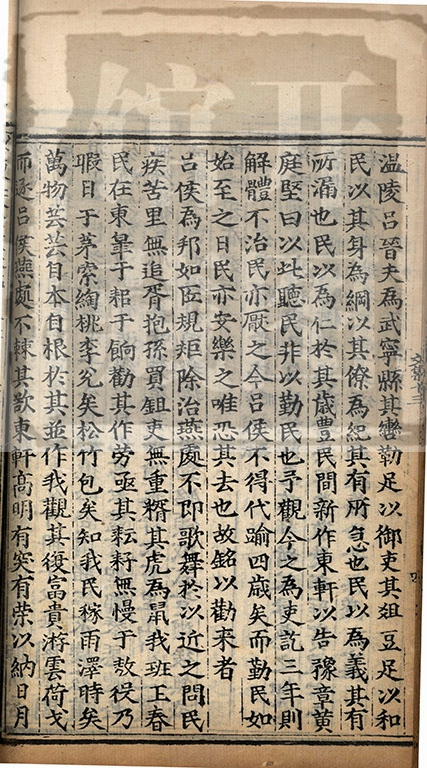 溫陵呂晉夫為武寧縣其轡勒足以御吏其俎豆足以和
民以其身為綱以其僚為紀其有所急也民以為義其有
所漏也民以為仁於其歲豐民間新作東軒以告豫章黃
庭堅曰以此聽民非以勤民也予觀今之為吏訖三年則
解體不治民亦厭之今呂侯不得代踰四歲矣而勤民如
始至之日民亦安樂之唯恐其去也故銘以勸來者
呂侯為邦如匠規矩除治燕處不即歌舞於以近之問民
疾苦里無追胥抱孫買鉏吏無重糈其虎為鼠我班王春
民在東辜于耜于餉勸其作勞亟其耘耔無慢于敖役乃
暇日于茅索綯桃李兊矣松竹包矣知我民稼雨澤時矣
萬物芸芸自本自根於其並作我觀其復富貴游雲荷戈
而逐呂侯燕處不棘其欲東軒高明有突有榮以納日月